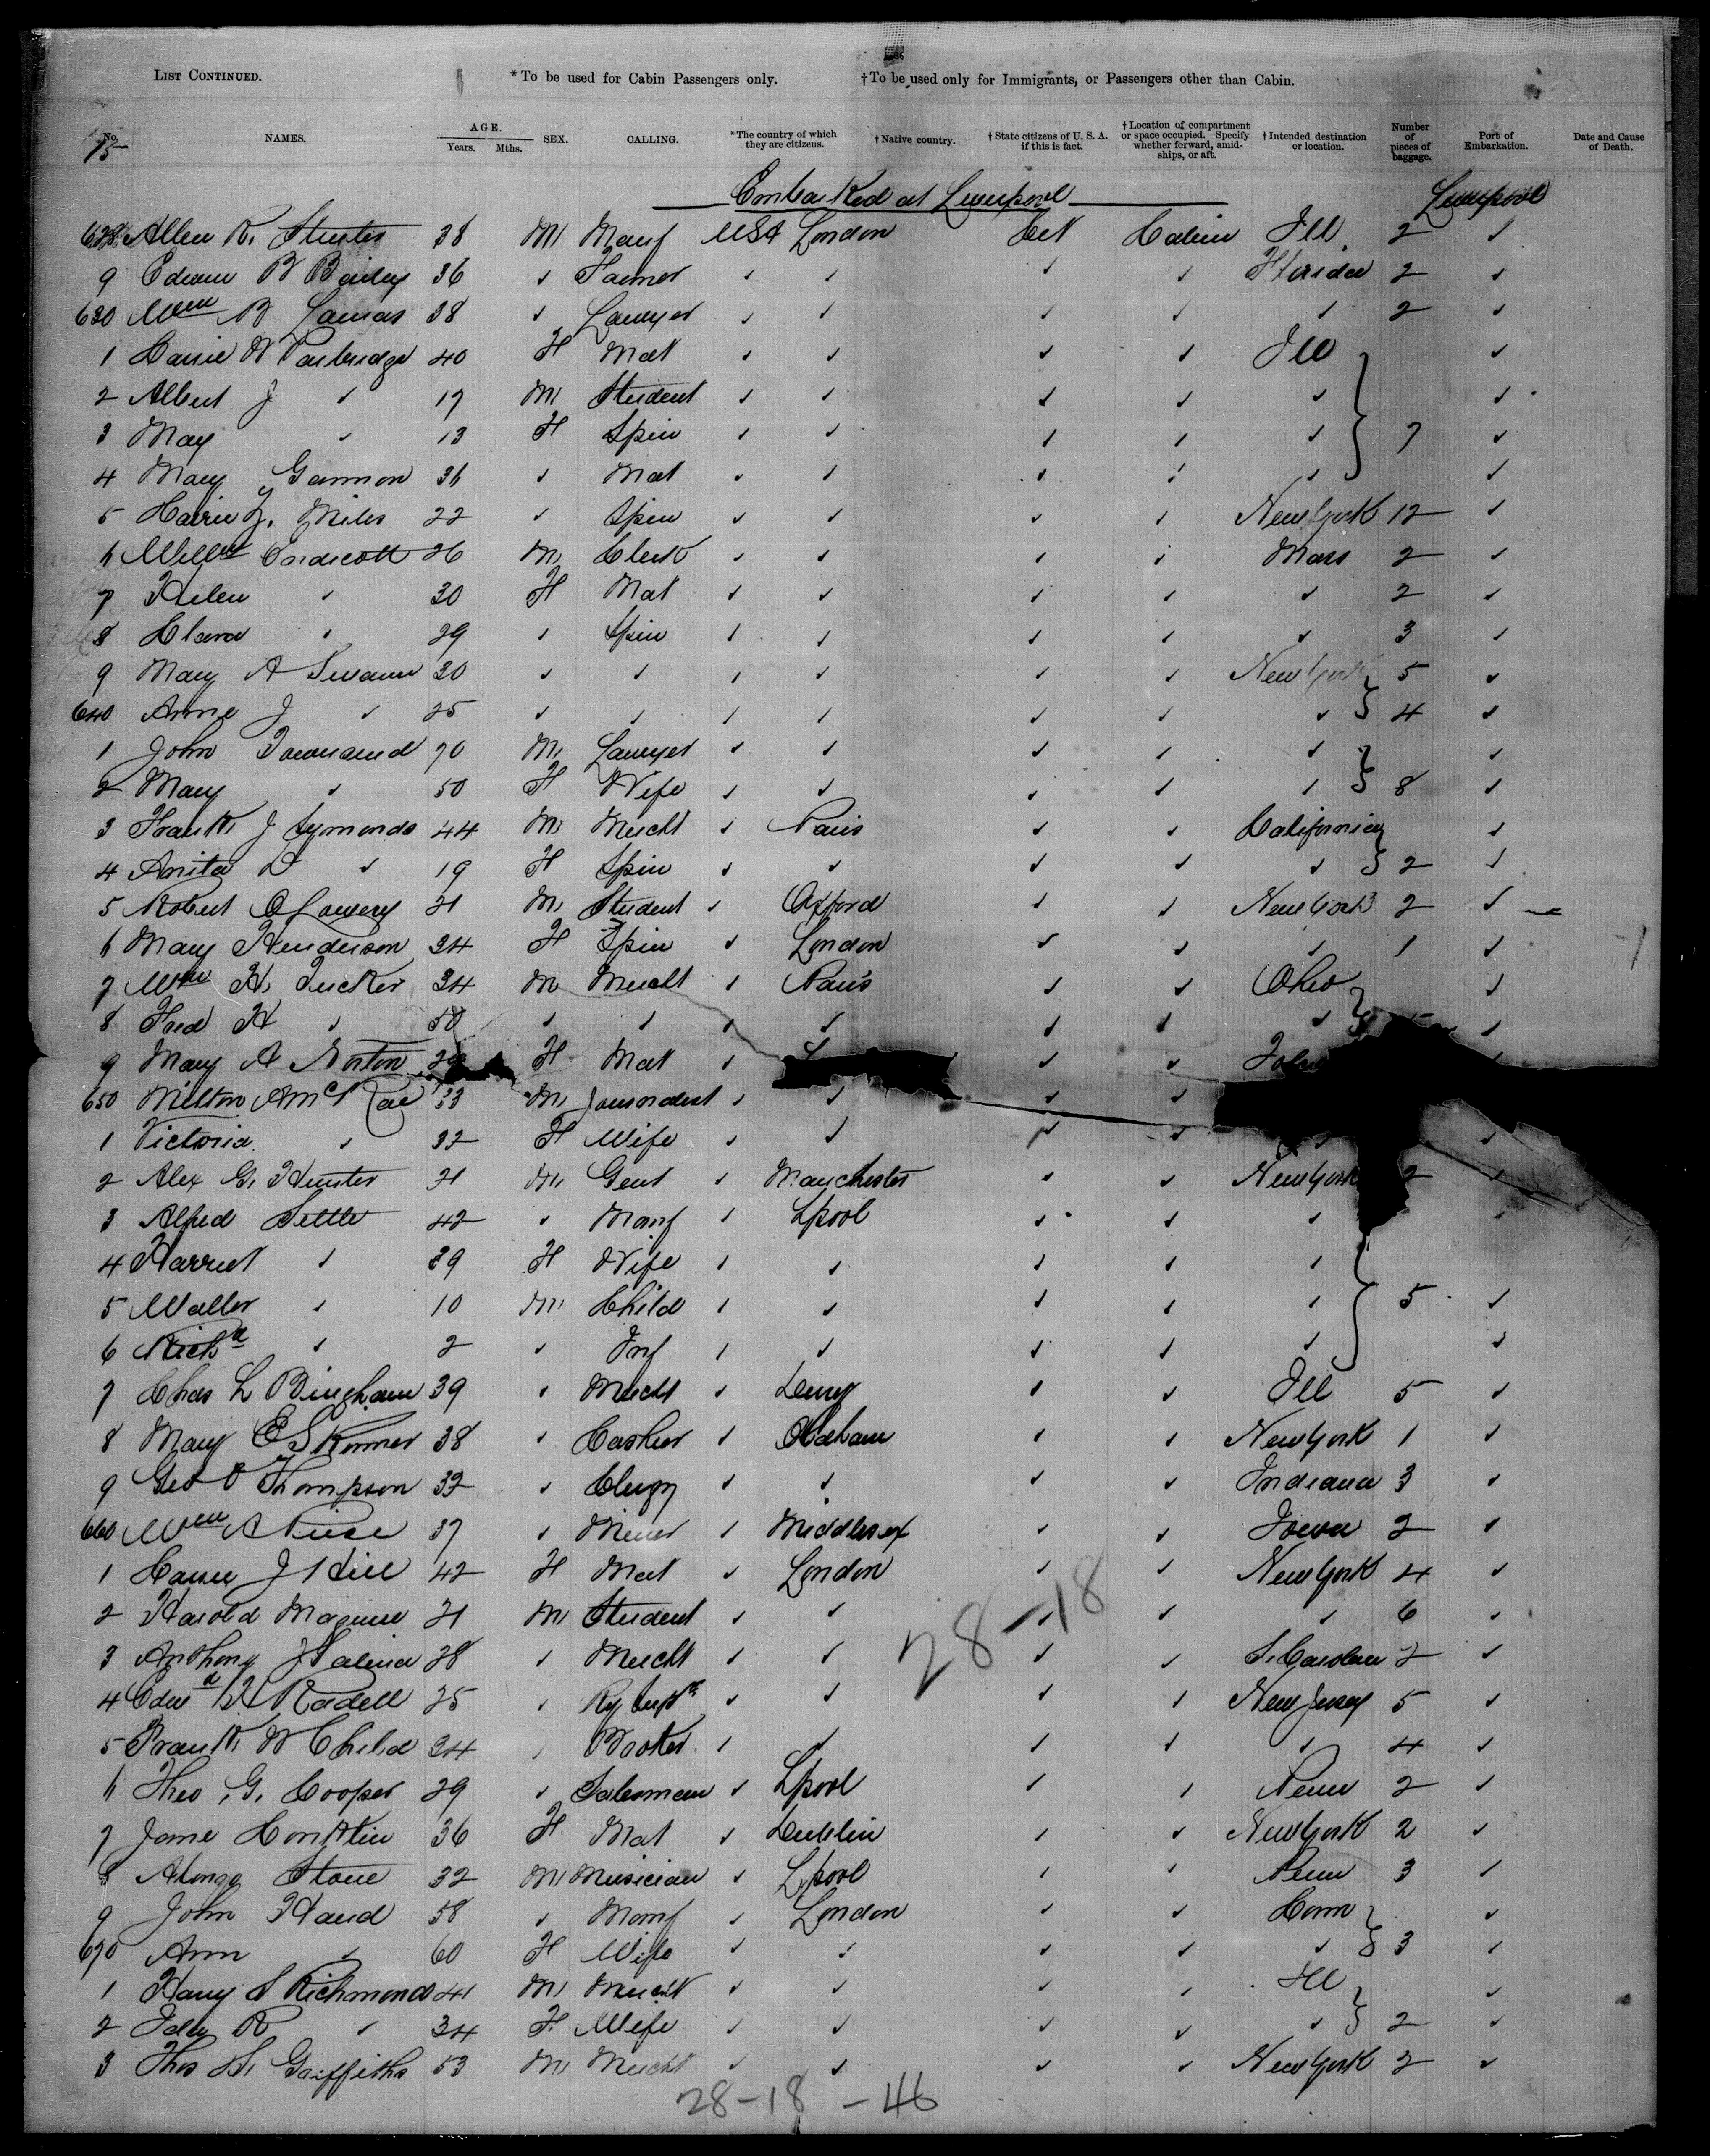 LIST CONTINUED. *To be used for Cabin Passengers only. †To be used only for Immigrants, or Passengers other than Cabin.
No. NAMES. AGE. Years. Mths. SEX. CALLING. *The country of which they are citizens. †Native country. †State citizens of U. S. A. if this is fact. †Location of compartment or space occupied. Specify whether forward, amidships, or aft. †Intended destination or location. Number of pieces of baggage. Port of Embarkation. Date and Cause of Death.
15
Embarked at Liverpool Liverpool
628 Allen R. 38 M Manf USA London Cit Cabin Ill. 2 ✓
9 Edwin B Bailey 36 ✓ Farmer ✓ ✓ ✓ ✓ Florida 2 ✓
630 Wm B Lamas 38 ✓ Lawyer ✓ ✓ ✓ ✓ ✓ 2 ✓
1 Carrie W Partridge 40 F Mat ✓ ✓ ✓ ✓ Ill ✓
2 Albert J ✓ 17 M Student ✓ ✓ ✓ ✓ ✓ ✓
3 May ✓ 13 F Spin ✓ ✓ ✓ ✓ ✓ 7 ✓
4 Mary Gannon 36 ✓ Mat ✓ ✓ ✓ ✓ ✓ ✓
5 Miles 22 ✓ Spin ✓ ✓ ✓ ✓ New York 12 ✓
6 Willm Endicott 26 M Clerk ✓ ✓ ✓ ✓ Mass 2 ✓
7 Helen ✓ 30 F Mat ✓ ✓ ✓ ✓ ✓ 2 ✓
8 Clara ✓ 29 ✓ Spin ✓ ✓ ✓ ✓ ✓ 3 ✓
9 Mary A Swann 30 ✓ ✓ ✓ ✓ ✓ ✓ New York 5 ✓
640 Anne J ✓ 25 ✓ ✓ ✓ ✓ ✓ ✓ ✓ 4 ✓
1 John Townsend 70 M Lawyer ✓ ✓ ✓ ✓ ✓ ✓
2 Mary ✓ 50 F Wife ✓ ✓ ✓ ✓ ✓ 8 ✓
3 Frank J Symonds 44 M Mercht ✓ Paris ✓ ✓ California ✓
4 Anita D ✓ 19 F Spin ✓ ✓ ✓ ✓ ✓ 2 ✓
5 Robert O Lowery 21 M Student ✓ Oxford ✓ ✓ New York 2 ✓
6 Mary Henderson 34 F Spin ✓ London ✓ ✓ ✓ 1 ✓
7 Wm H. Tucker 34 M Mercht ✓ Paris ✓ ✓ Ohio ✓
8 Fred H ✓ 50 ✓ ✓ ✓ ✓ ✓ ✓ ✓ ✓
9 Mary A Norton F Mat ✓ ✓ ✓
650 Milton A McRae 33 M Journalist ✓ ✓ ✓ ✓
1 Victoria ✓ 32 F Wife ✓ ✓ ✓ ✓ ✓ ✓
2 Alex G. Hunter 21 M Gent ✓ Manchester ✓ ✓ New York 2 ✓
3 Alfred Settle 42 ✓ Manf ✓ Lpool ✓ ✓ ✓ ✓
4 Harriet ✓ 39 F Wife ✓ ✓ ✓ ✓ ✓
5 Walter ✓ 10 M Child ✓ ✓ ✓ ✓ ✓ 5 ✓
6 Richd ✓ 2 ✓ Inf ✓ ✓ ✓ ✓ ✓ ✓
7 Chas L Bingham 39 ✓ Mercht ✓ ✓ ✓ Ill 5 ✓
8 Mary E Skinner 38 ✓ Cashier ✓ Oldham ✓ ✓ New York 1 ✓
9 Geo P Thompson 32 ✓ Clergy ✓ ✓ ✓ ✓ Indiana 3 ✓
660 Wm A 37 ✓ Miner ✓ Middlesex ✓ ✓ Iowa 2 ✓
1 J Hill 42 F Mat ✓ London ✓ ✓ New York 4 ✓
2 Harold Maguire 21 M Student ✓ ✓ ✓ ✓ ✓ 6 ✓
28-18
3 Anthony J Salina 28 ✓ Mercht ✓ ✓ ✓ ✓ S. Carolina 2 ✓
4 Edwd W Radell 25 ✓ Ry Supt ✓ ✓ ✓ ✓ New Jersey 5 ✓
5 Frank W Child 34 ✓ Broker ✓ ✓ ✓ ✓ ✓ 4 ✓
6 Theo. G. Cooper 29 ✓ Salesman ✓ Lpool ✓ ✓ Penn 2 ✓
7 Jane Conklin 36 F Mat ✓ Dublin ✓ ✓ New York 2 ✓
8 Alonzo Stone 32 M Musician ✓ Lpool ✓ ✓ Penn 3 ✓
9 John Hand 58 ✓ Manf ✓ London ✓ ✓ Conn ✓
670 Ann ✓ 60 F Wife ✓ ✓ ✓ ✓ ✓ 3 ✓
1 Harry S Richmond 41 M Mercht ✓ ✓ ✓ ✓ Ill ✓
2 Ida R ✓ 34 F Wife ✓ ✓ ✓ ✓ ✓ 2 ✓
3 Thos H. Griffiths 53 M Mercht ✓ ✓ ✓ ✓ New York 2 ✓
28-18-46